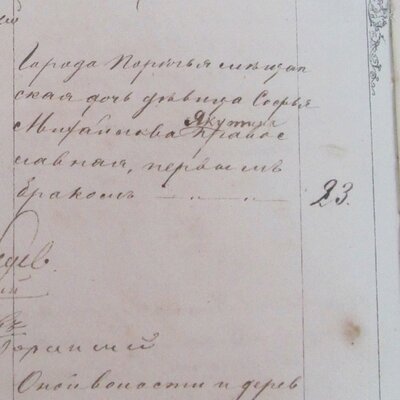 Города Порѣчья мѣщан
ская дочь дѣвица Софья
Михайлова Якутина Правос
лавная, первымъ
бракомъ
23.
Оной волости и дерев